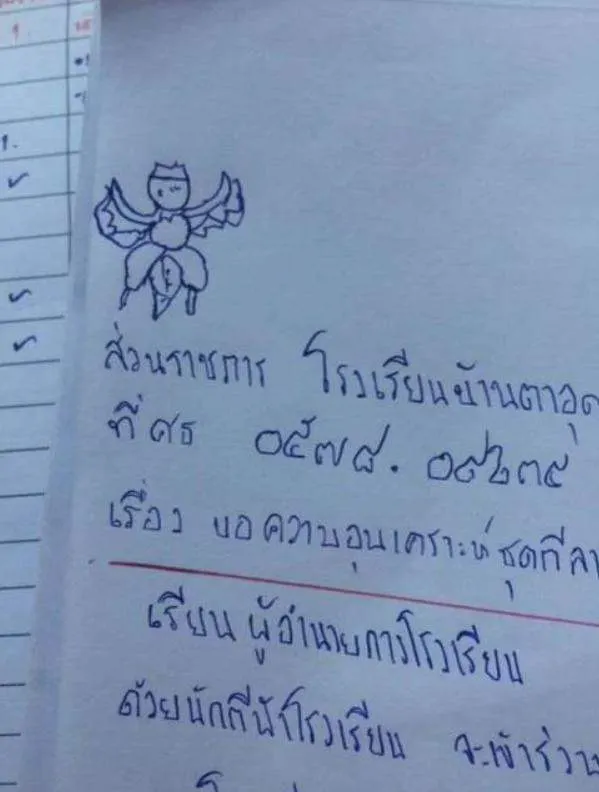 ส่วนราชการ โรงเรียนบ้านตาอุด
ที่ ศธ ๐๕๗๘.
เรื่อง ขอความอนุเคราะห์ชุดกีฬา
เรียน ผู้อำนายการโรงเรียน
ด้วยนักกีฬาโรงเรียน จะเข้าร่วม